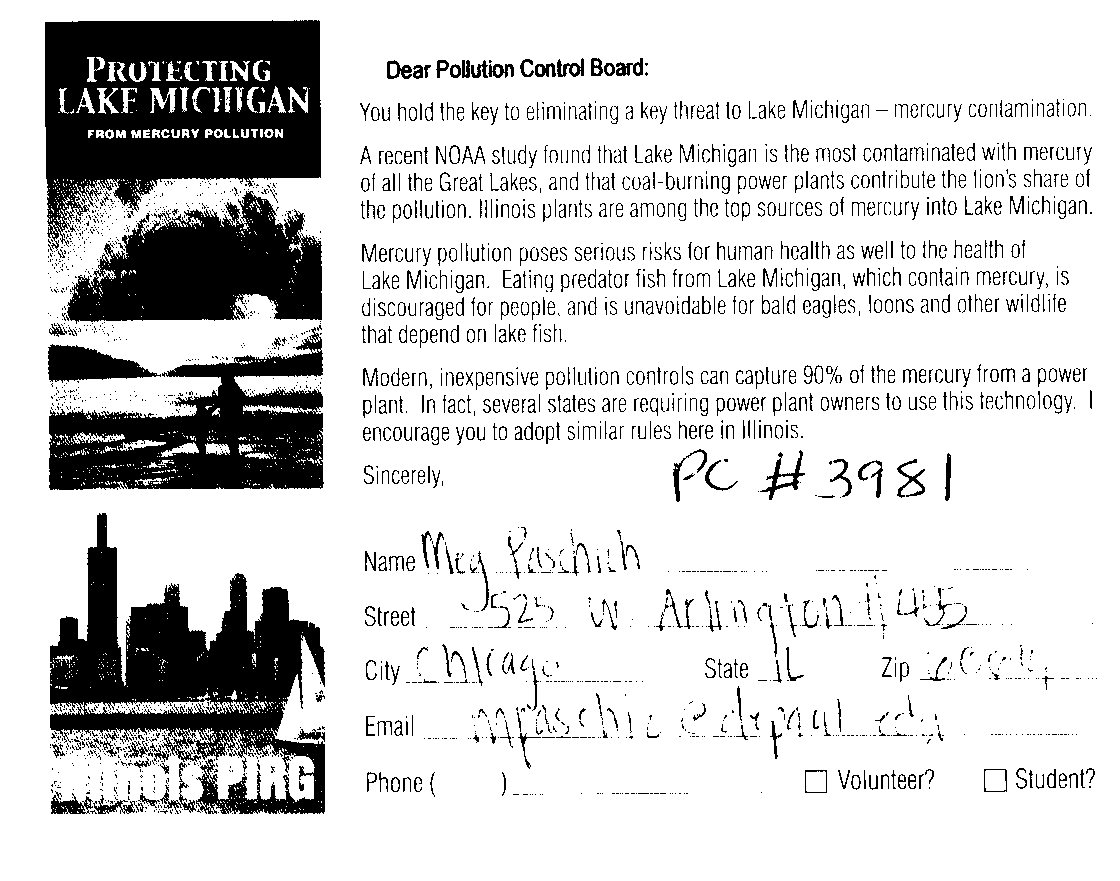 PROTECTING
LAKE MICHIGAN
FROM MERCURY POLLUTION
Illinois PIRG
Dear Pollution Control Board:
You hold the key to eliminating a key threat to Lake Michigan – mercury contamination.
A recent NOAA study found that Lake Michigan is the most contaminated with mercury
of all the Great Lakes, and that coal-burning power plants contribute the lion's share of
the pollution. Illinois plants are among the top sources of mercury into Lake Michigan.
Mercury pollution poses serious risks for human health as well to the health of
Lake Michigan. Eating predator fish from Lake Michigan, which contain mercury, is
discouraged for people, and is unavoidable for bald eagles, loons and other wildlife
that depend on lake fish.
Modern, inexpensive pollution controls can capture 90% of the mercury from a power
plant. In fact, several states are requiring power plant owners to use this technology. I
encourage you to adopt similar rules here in Illinois.
Sincerely,
PC # 3981
Name Meg
Street 525 W Arlington # 455
City Chicago State IL Zip
Email mpaschic@depaul.edu
Phone ( ) Volunteer? Student?